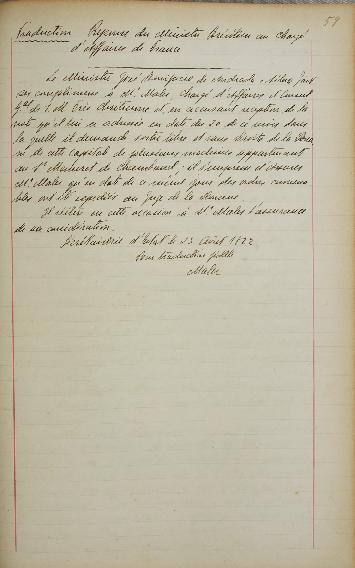 59
Traduction Réponse du Ministre Brésilien au Chargé
d'Affaires de France
Le Ministre José Bonifacio de Andrada e Silva fait
ses compliments à Mr. Maler Chargé d'Affaires et Consul
Gal de S. M. Très Chrétienne et, en accusant reception de la
note qu'il lui a adressée en date du 20 de ce mois dans
la quelle il demande sortie libre et sans droits de la Douane
de cette capitale de plusieurs machines appartenant
au Sr. de Chambaud; il s'empresse d'assurer
Mr. Maler qu'en date de ce même jour les ordres convena-
bles ont été expédiés au Juge de la Douane.
Il réitère en cette occasion à Mr. Maler l'assurance
de sa considération.
Secrétairerie d'Etat le 23 Août 1822
Pour traduction fidèle
Maler